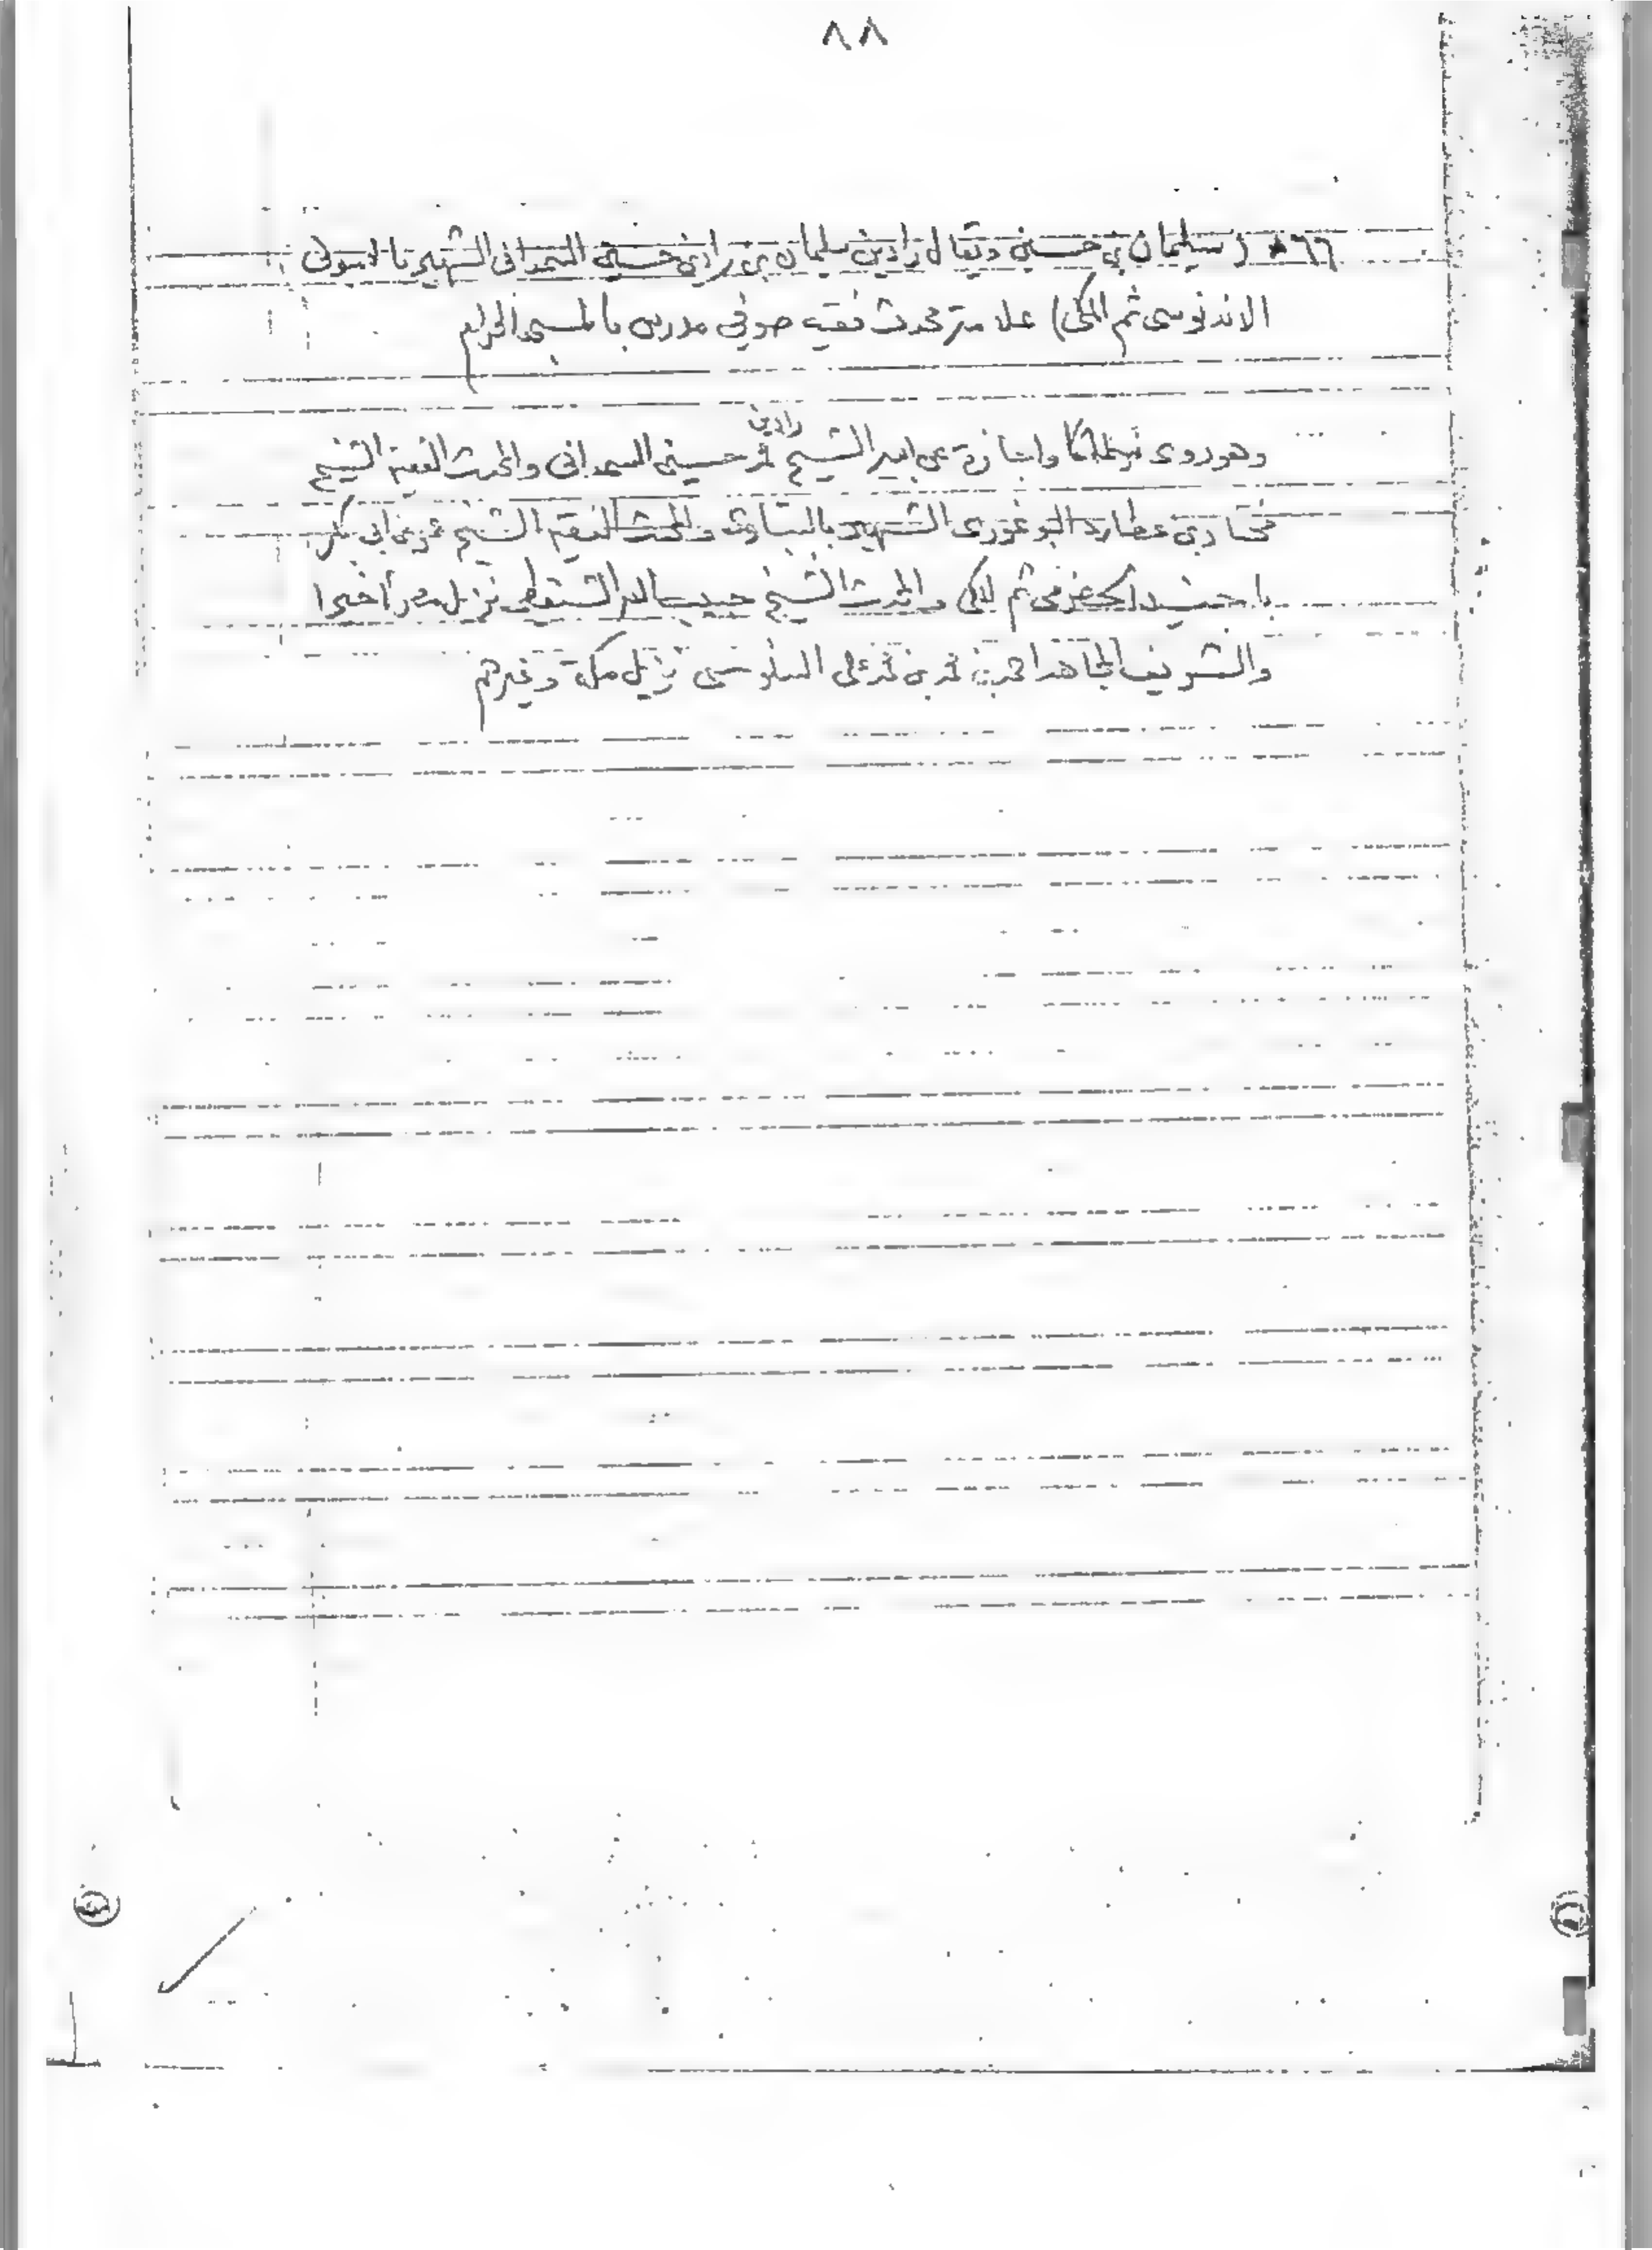 ٨٨
٦٦ * (سليمان بن حسين ويقال رادين سليمان بن رادين حسين السمداني الشهير با
الاندنوسى ثم المكى) علامة محدث فقيه صوفي مدرس بالمسجد الحرام
رادين
وهو روى واجازة عن ابيه الشيخ محمد حسين السمدانى والمحدث الفقيه الشيخ
مختار بن عطارد البوغورى الشهير بالبتاوى والمحدث الفقيه الشيخ عمر بن ابي بكر
باجنيد الحضرمى ثم المكى والمحدث الشيخ حبيب الله الشنقيطى نزيل مصر أخيرا
والشريف المجاهد احمد بن محمد بن محمد على السنوسى نزيل مكة وغيرهم